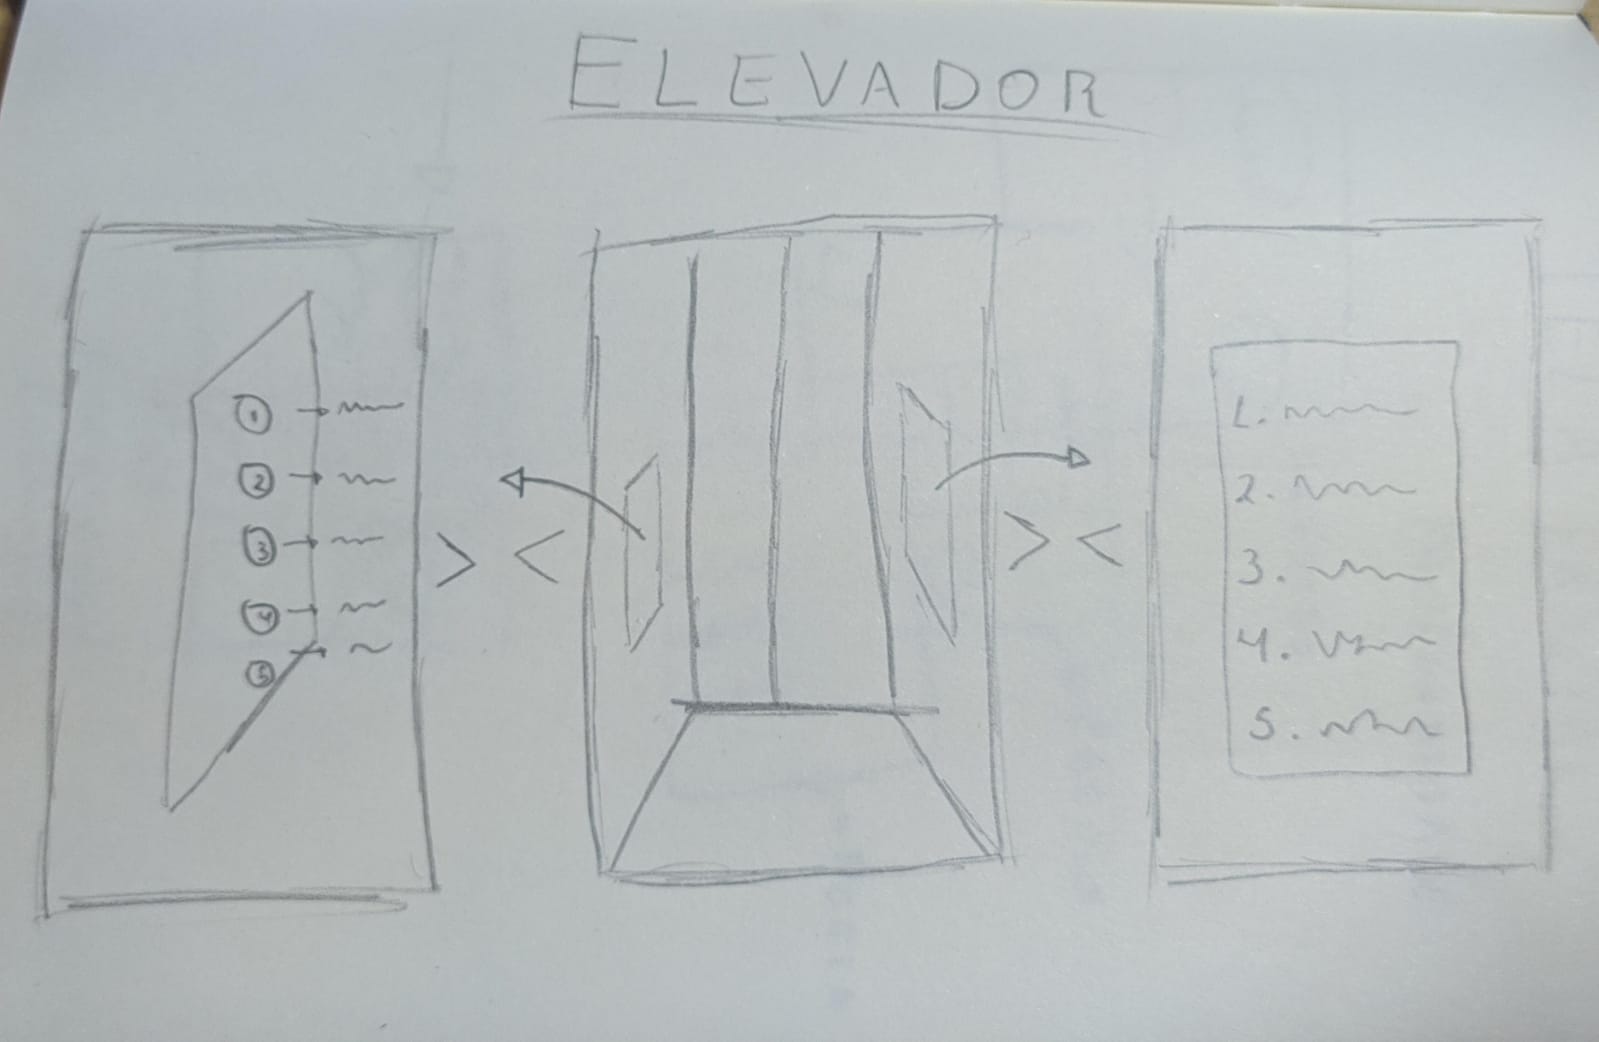 ELEVADOR
1
2
3
4
5
> <
> <
1.
2.
3.
4.
5.